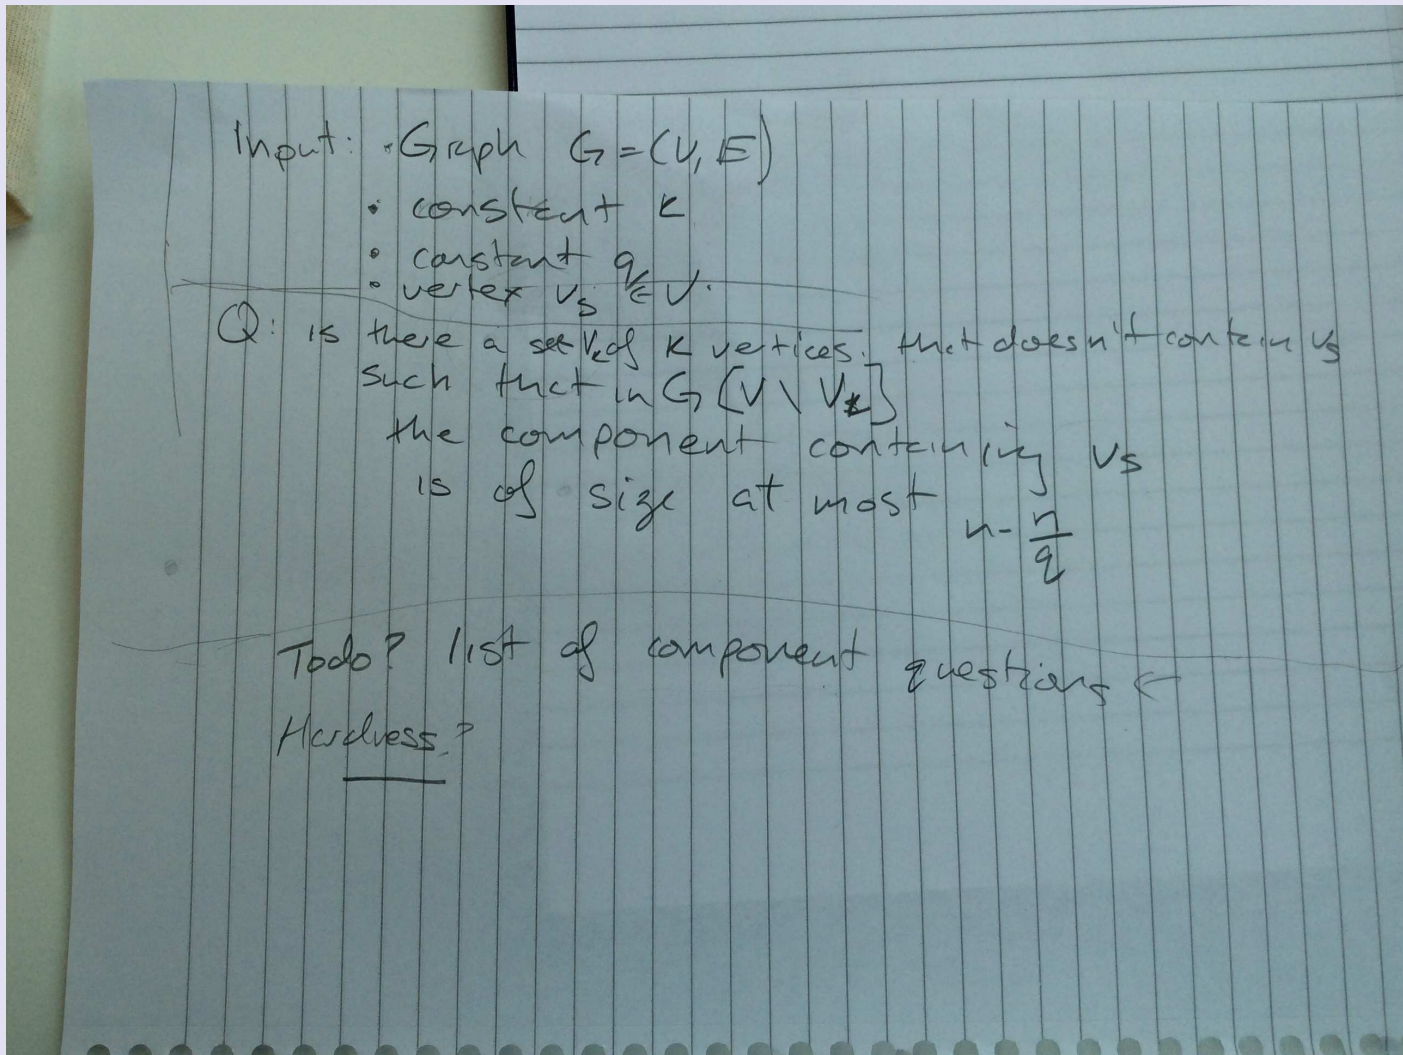 Input: • Graph G = (V, E)
• constant k
• constant q
• vertex v_s ∈ V.
Q: is there a set V_k of k vertices. that doesn't contain v_s
such that in G[V \ V_k]
the component containing v_s
is of size at most
n - n/q
Todo? list of component questions ←
Hardness?